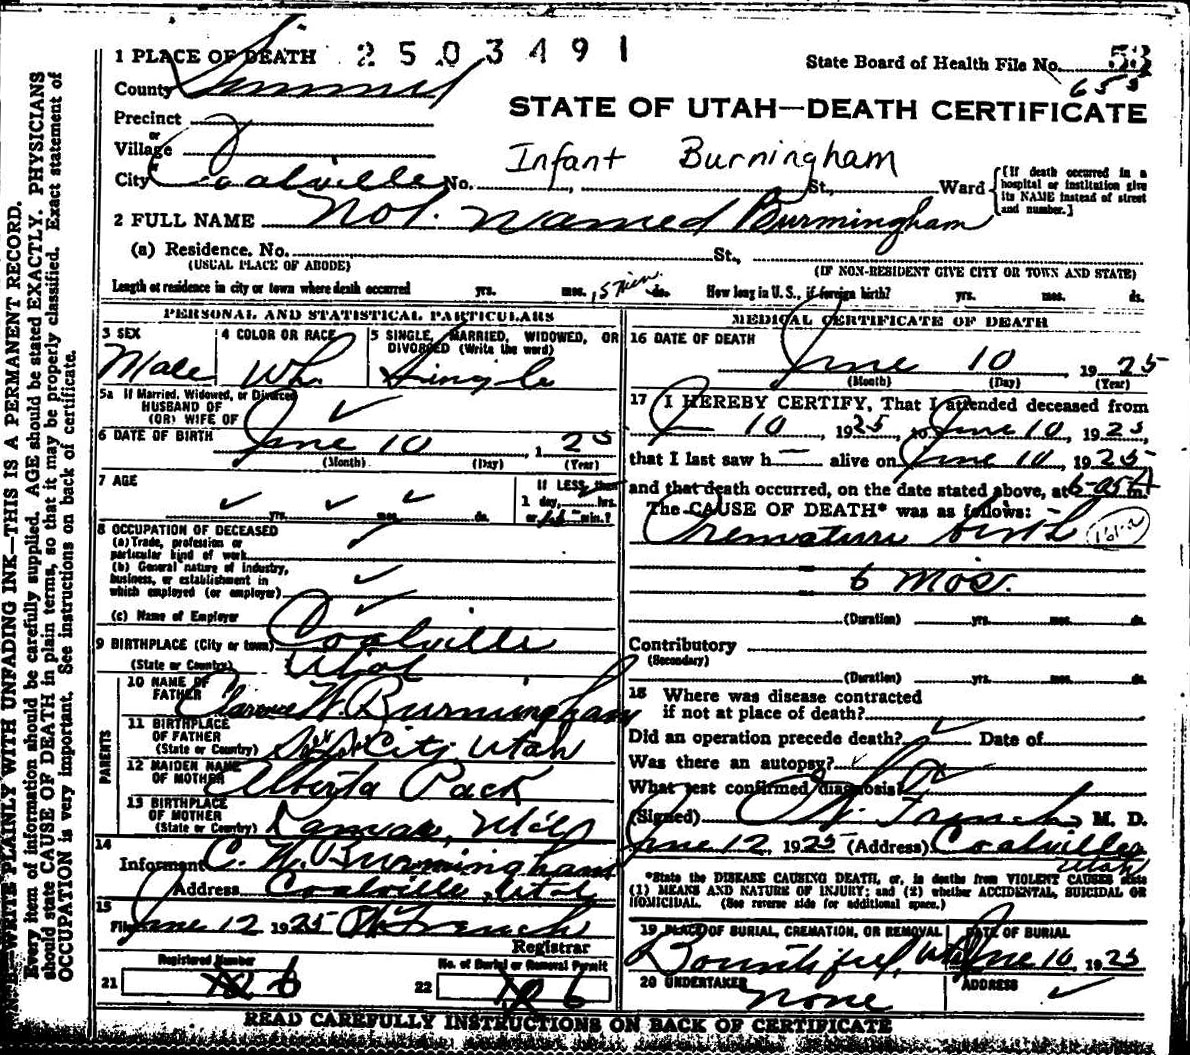 1 PLACE OF DEATH 2503491 State Board of Health File No. 53
County Summit 653
STATE OF UTAH—DEATH CERTIFICATE
Precinct
or
Village
or
Infant Burningham
City Coalville No. St., Ward {[If death occurred in a hospital or institution give its NAME instead of street and number.]
2 FULL NAME Not named Burningham
(a) Residence. No. St.,
(USUAL PLACE OF ABODE) (IF NON-RESIDENT GIVE CITY OR TOWN AND STATE)
Length of residence in city or town where death occurred yrs. mos. 15 min. ds. How long in U. S., if foreign birth? yrs. mos. ds.
PERSONAL AND STATISTICAL PARTICULARS
3 SEX 4 COLOR OR RACE 5 SINGLE, MARRIED, WIDOWED, OR DIVORCED (Write the word)
Male Wh. Single
5a If Married, Widowed, or Divorced
HUSBAND OF
(OR) WIFE OF ✓
6 DATE OF BIRTH June 10, 1 25
(Month) (Day) (Year)
7 AGE If LESS than
✓ yrs. ✓ mos. ✓ ds. 1 day, hrs.
or min.?
8 OCCUPATION OF DECEASED
(a) Trade, profession or
particular kind of work ✓
(b) General nature of industry,
business, or establishment in
which employed (or employer) ✓
(c) Name of Employer ✓
9 BIRTHPLACE (City or town) Coalville
(State or Country) Utah
PARENTS
10 NAME OF
FATHER Clarence W. Burningham
11 BIRTHPLACE
OF FATHER
(State or Country) City, Utah
12 MAIDEN NAME
OF MOTHER Alberta Pack
13 BIRTHPLACE
OF MOTHER
(State or Country) Kamas, Utah
14
Informant C. W. Burningham
Address Coalville, Utah
15
Filed June 12 1925 French
Registrar
Registered Number No. of Burial or Removal Permit
21 6 22 6
MEDICAL CERTIFICATE OF DEATH
16 DATE OF DEATH
June 10 1925
(Month) (Day) (Year)
17 I HEREBY CERTIFY, That I attended deceased from
J— 10, 1925, to June 10, 1925,
that I last saw h— alive on June 10, 1925
and that death occurred, on the date stated above, at 6-05 A m.
The CAUSE OF DEATH* was as follows:
Premature birth 161-a
6 mos.
(Duration) yrs. mos. ds.
Contributory
(Secondary)
(Duration) yrs. mos. ds.
18 Where was disease contracted
if not at place of death?
Did an operation precede death? ✓ Date of
Was there an autopsy? ✓
What test confirmed diagnosis?
(Signed) French M. D.
June 12, 1925 (Address) Coalville
Utah
*State the DISEASE CAUSING DEATH, or, in deaths from VIOLENT CAUSES state
(1) MEANS AND NATURE OF INJURY; and (2) whether ACCIDENTAL, SUICIDAL OR
HOMICIDAL. (See reverse side for additional space.)
19 PLACE OF BURIAL, CREMATION, OR REMOVAL DATE OF BURIAL
Bountiful, Utah June 10, 1925
20 UNDERTAKER ADDRESS
none ✓
READ CAREFULLY INSTRUCTIONS ON BACK OF CERTIFICATE
N. B.—WRITE PLAINLY WITH UNFADING INK—THIS IS A PERMANENT RECORD.
Every item of information should be carefully supplied. AGE should be stated EXACTLY. PHYSICIANS
should state CAUSE OF DEATH in plain terms, so that it may be properly classified. Exact statement of
OCCUPATION is very important. See instructions on back of certificate.